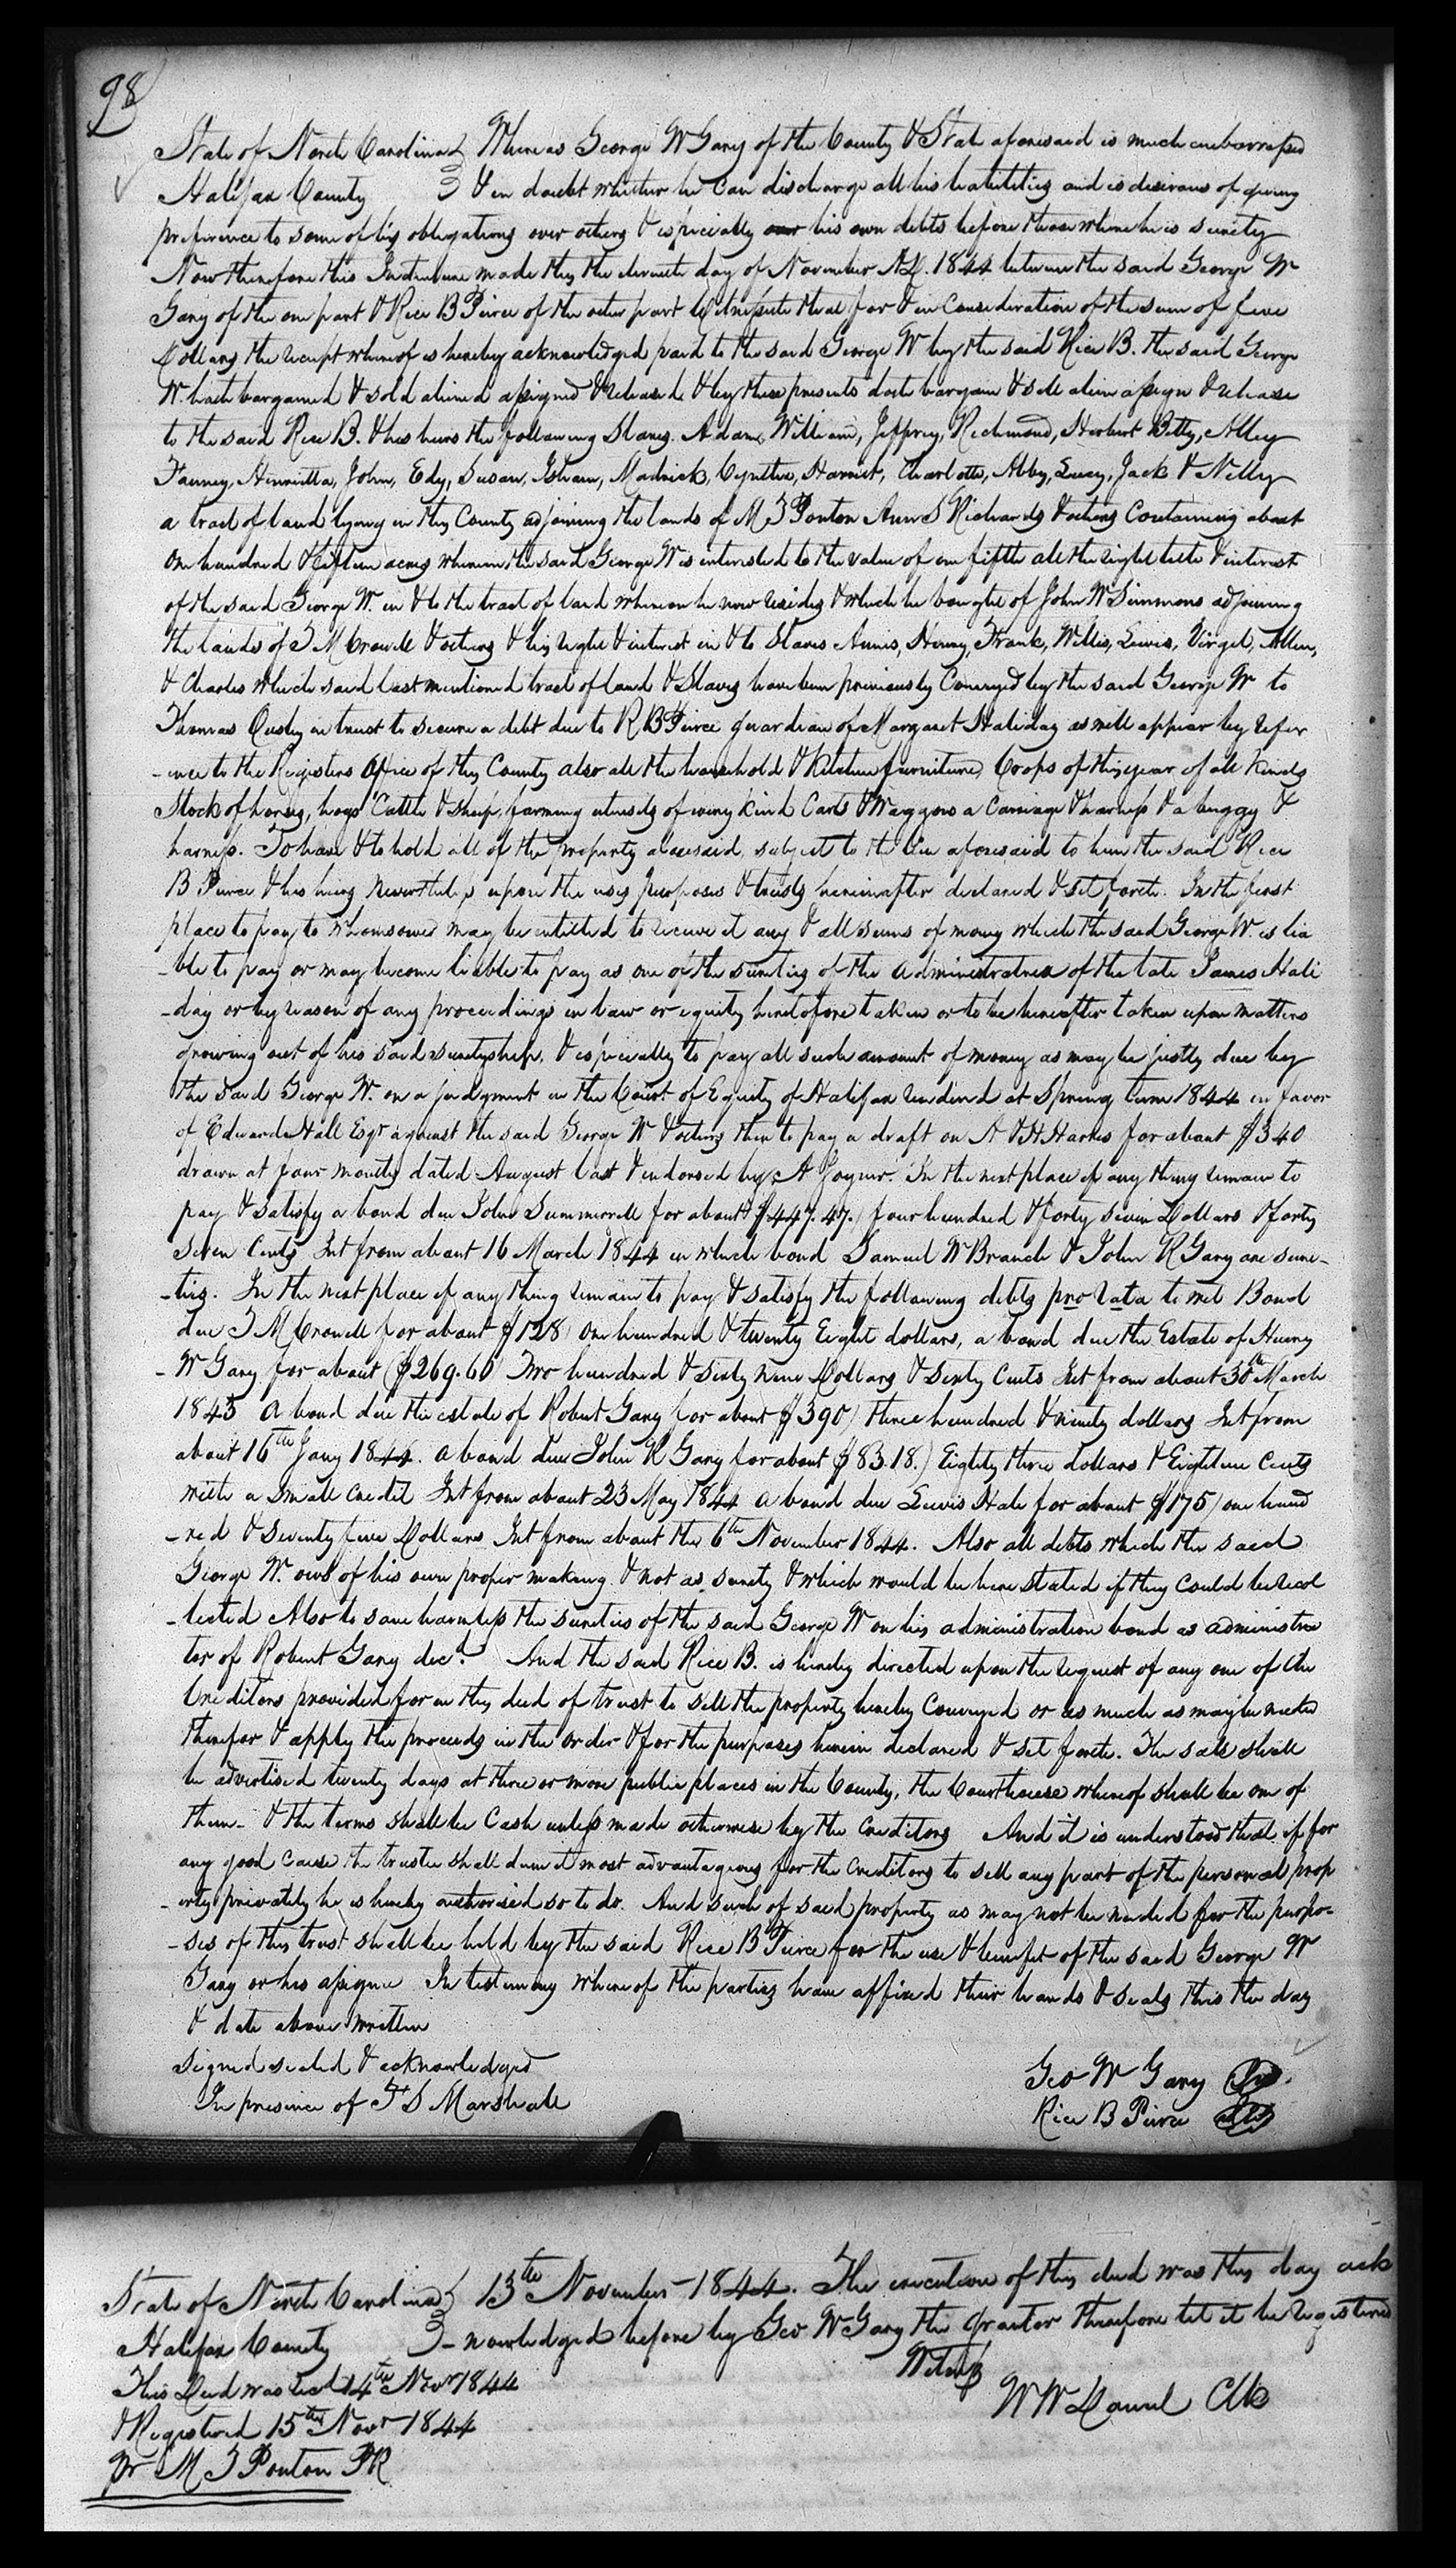 98
State of North Carolina } Whereas George W Gary of the County & State aforesaid is much embarrassed
Halifax County } & in doubt whether he can discharge all his liabilities and is desirous of giving
preference to some of his obligations over others & especially over his own debts before those where he is surety
Now therefore this Indenture made this the eleventh day of November AD. 1844 between the said George W
Gary of the one part & Rice B Peirce of the other part Witnesseth that for & in consideration of the sum of five
Dollars the receipt whereof is hereby acknowledged paid to the said George W by the said Rice B. the said George
W. hath bargained & sold aliened assigned & released & by these presents doth bargain & sell alien assign & release
to the said Rice B. & his heirs the following Slaves. Adam, William, Jeffrey, Richmond, Herbert Betty, Alley
Fanney, Henrietta, John, Edy, Susan, Isham, Madrick, Cynthia, Harriet, Charlotte, Abby, Lucy, Jack & Nelly
a tract of land lying in this County adjoining the lands of M T Ponton Ann S Richards & others containing about
one hundred & fifteen acres wherein the said George W is interested to the value of one fifth all the right title & interest
of the said George W. in & to the tract of land whereon he now resides & which he bought of John W Simmons adjoining
the lands of T M Crowell & others & his right & interest in & to Slaves Annis, Henry, Frank, Willis, Lewis, Virgil, Allen,
& Charles which said last mentioned tract of land & Slaves have been previously conveyed by the said George W to
Thomas Ousby in trust to secure a debt due to R B Peirce guardian of Margaret Haliday as will appear by refer
-ence to the Registers Office of this County also all the household & kitchen furniture, Crops of this year of all kinds
Stock of horses, hogs Cattle & sheep, farming utensils of every kind Carts & Waggons a Carriage & harness & a buggy &
harness. To have & to hold all of the property aforesaid, subject to the lien aforesaid to him the said Rice
B Peirce & his heirs nevertheless upon the uses purposes & trusts hereinafter declared & set forth. In the first
place to pay to whomsoever may be entitled to receive it any & all sums of money which the said George W. is lia
-ble to pay or may become liable to pay as one of the sureties of the administratrix of the late James Hali
-day or by reason of any proceedings in law or equity heretofore taken or to be hereafter taken upon matters
growing out of his said suretyship, & especially to pay all such amount of money as may be justly due by
the said George W. on a judgment in the Court of Equity of Halifax rendered at Spring term 1844 in favor
of Edward Hall Esqr against the said George W & others then to pay a draft on A & H Harris for about $340
drawn at four months dated August last & endorsed by A Joyner. In the next place if any thing remain to
pay & satisfy a bond due John Summerell for about $447.47.) four hundred & forty seven Dollars & forty
seven Cents Int from about 16 March 1844 in which bond Samuel W Branch & John R Gary are sure-
-ties. In the next place if any thing remain to pay & satisfy the following debts pro rata to wit Bond
due T M Crowell for about $128) one hundred & twenty Eight dollars, a bond due the Estate of Henry
-W Gary for about ($269.60 Two hundred & sixty nine Dollars & sixty Cents Int from about 30th March
1843 a bond due the estate of Robert Gary for about $390) three hundred & ninety dollars Int from
about 16th Jany 1844. a bond due John R Gary for about $83.18.) Eighty three dollars & Eighteen Cents
with a small credit Int from about 23 May 1844 a bond due Lewis Hale for about $175) one hund
-red & seventy five Dollars Int from about the 6th November 1844. Also all debts which the said
George W. owes of his own proper making & not as surety & which would be here stated if they could be recol
-lected Also to save harmless the sureties of the said George W on his administration bond as administra
tor of Robert Gary decd. And the said Rice B. is hereby directed upon the request of any one of the
Creditors provided for in this deed of trust to sell the property hereby conveyed or as much as may be needed
therefor & apply the proceeds in the order & for the purposes herein declared & set forth. The sale shall
be advertised twenty days at three or more public places in the County, the Courthouse whereof shall be one of
them- & the terms shall be Cash unless made otherwise by the Creditors And it is understood that if for
any good cause the trustee shall deem it most advantageous for the creditors to sell any part of the personal prop
-erty privately he is hereby authorised so to do. And such of said property as may not be needed for the purpo-
-ses of this trust shall be held by the said Rice B Peirce for the use & benefit of the said George W
Gary or his assignee In testimony whereof the parties have affixed their hands & seals this the day
& date above written
Signed sealed & acknowledged
In presence of F S Marshall
Geo W Gary Seal
Rice B Peirce Seal
State of North Carolina } 13th November 1844. The execution of this deed was this day ack
Halifax County } -nowledged before by Geo W Gary the grantor therefore let it be registered
Witness
W W Daniel Clk
This Deed was recd 14th Novr 1844
& Registered 15th Novr 1844
pr M T Ponton PR